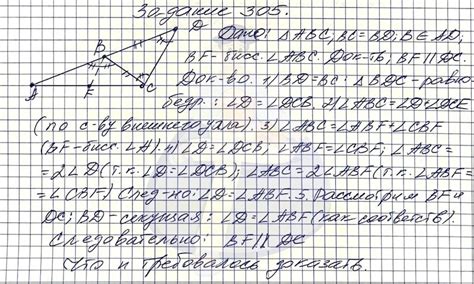 Задание 305.
D
B
A
F
C
Дано: △ABC; BC=BD; B∈AD;
BF-бисс. ∠ABC. Док-ть: BF || DC.
Док-во. 1) BD=BC: △BDC-равно-
бедр.: ∠D=∠DCB. 2) ∠ABC=∠D+∠DCB
(по с-ву внешнего угла). 3) ∠ABC=∠ABF+∠CBF
(BF-бисс. ∠A). 4) ∠D=∠DCB; ∠ABF=∠CBF; ∠ABC=
=2∠D (т.к. ∠D=∠DCB); ∠ABC=2∠ABF (т.к. ∠ABF=
=∠CBF) След-но: ∠D=∠ABF. 5. Рассмотрим BF и
DC; BD-секущая: ∠D=∠ABF (как соответств).
Следовательно: BF || DC
Что и требовалось доказать.